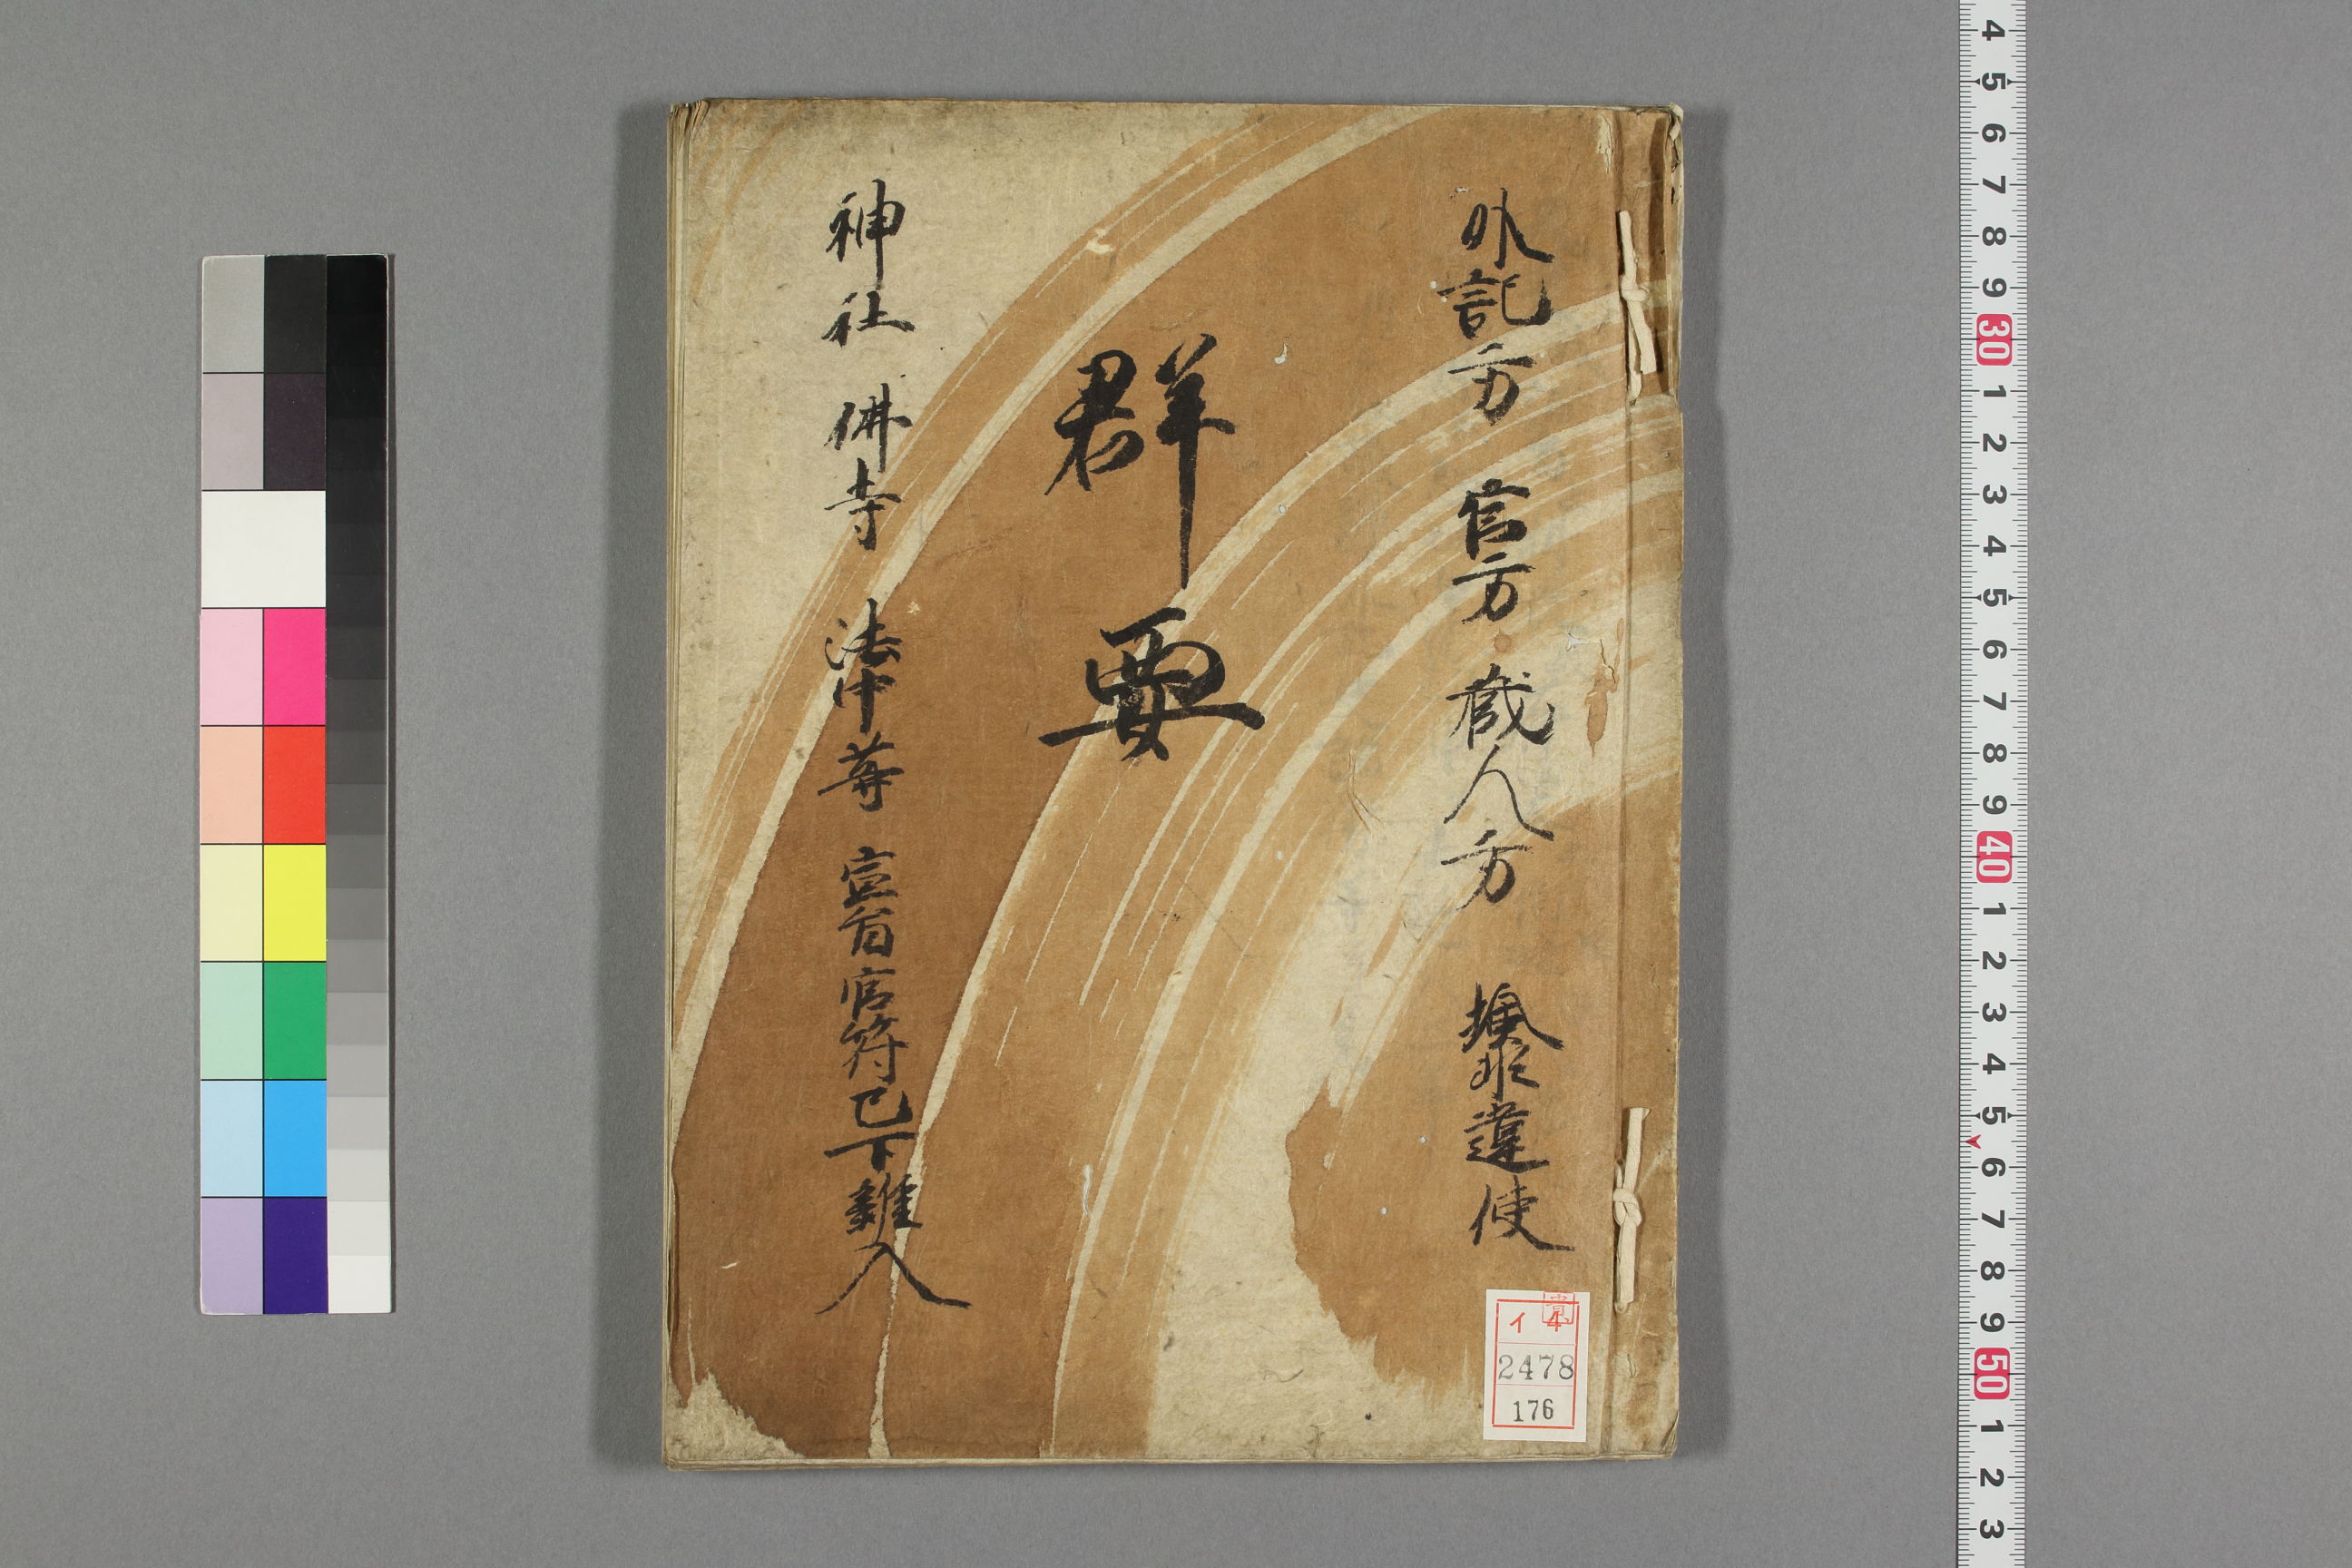 外記方 官方 蔵人方 撿非違使
群要
神社 佛寺 法中等 宣旨官符已下雑入
イ 4
2478
176
4 5 6 7 8 9 30 1 2 3 4 5 6 7 8 9 40 1 2 3 4 5 6 7 8 9 50 1 2 3